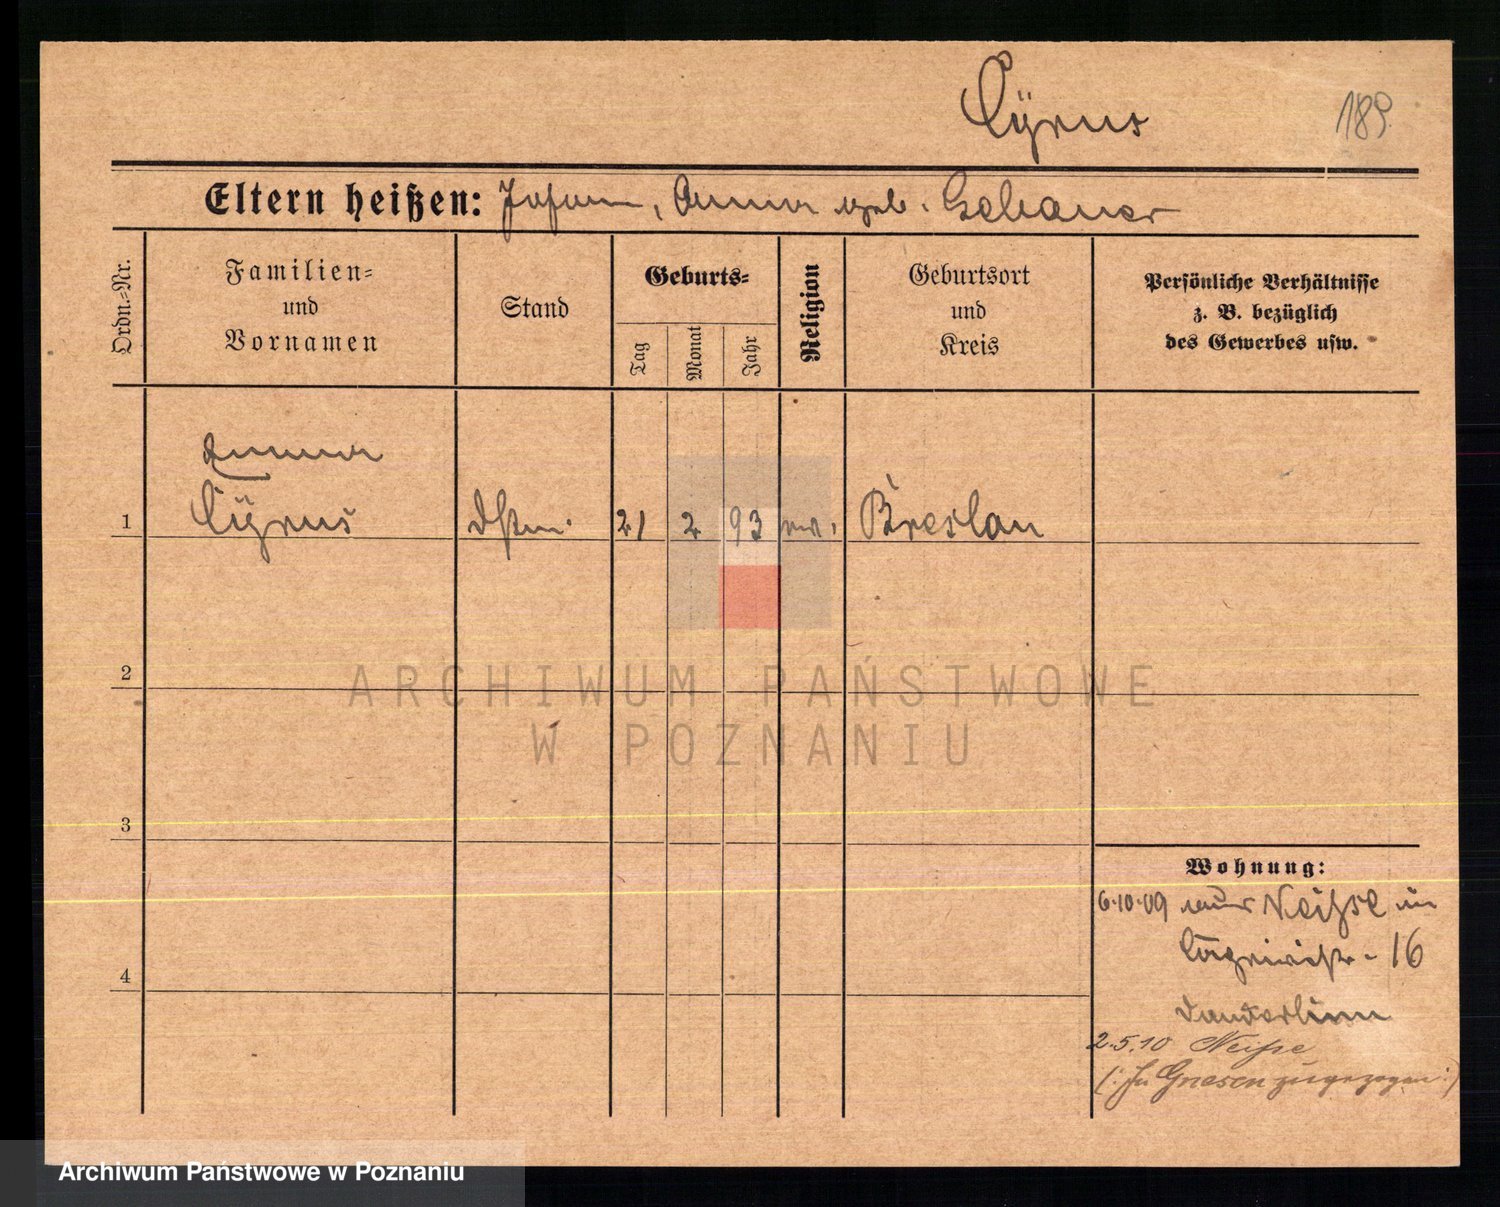 Cÿrus
189.
Eltern heißen: Johann, Anna geb. Gebauer
Ordn.-Nr.
Familien-
und
Vornamen
Stand
Geburts-
Tag
Monat
Jahr
Religion
Geburtsort
und
Kreis
Persönliche Verhältnisse
z. B. bezüglich
des Gewerbes usw.
Anna
1 Cÿrus 21 2 93 Breslau
2
3
4
Wohnung:
6.10.09 aus Neiße in
16
2.5.10 Neiße
(: In Gnesen zugezogen :)
ARCHIWUM PAŃSTWOWE
W POZNANIU
Archiwum Państwowe w Poznaniu